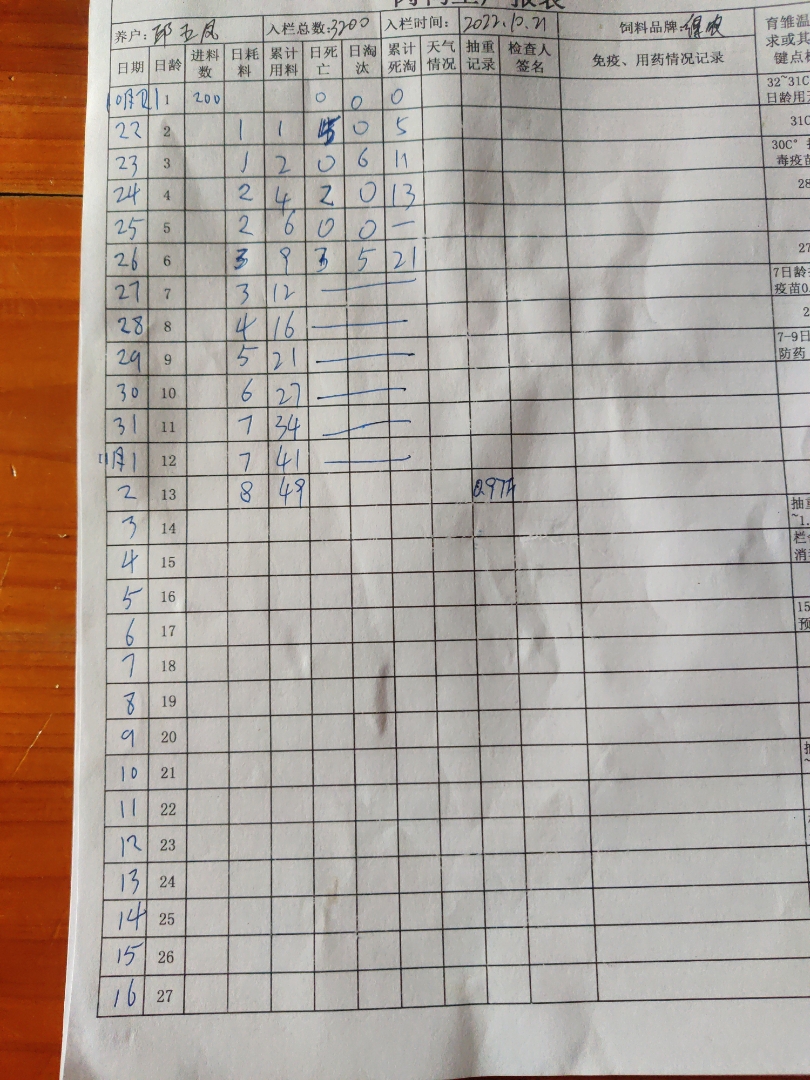 养户: 邱五凤 入栏总数:3200 入栏时间: 2022.10.21 饲料品牌:
日期 日龄 进料数 日耗料 累计用料 日死亡 日淘汰 累计死淘 天气情况 抽重记录 检查人签名 免疫、用药情况记录 育雏温
10月21 1 200 0 0 0 32~31C
日龄用
22 2 1 1 5 0 5 31C
23 3 1 2 0 6 11 30C°
毒疫苗
24 4 2 4 2 0 13 28
25 5 2 6 0 0 —
26 6 3 9 3 5 21 27
27 7 3 12 — 7日龄
疫苗0.
28 8 4 16 — 2
29 9 5 21 — 7-9日
防药
30 10 6 27 —
31 11 7 34 —
11月1 12 7 41 —
2 13 8 49
3 14 抽重
~1.
4 15 栏
消
5 16
6 17 15
预
7 18
8 19
9 20
10 21
11 22
12 23
13 24
14 25
15 26
16 27